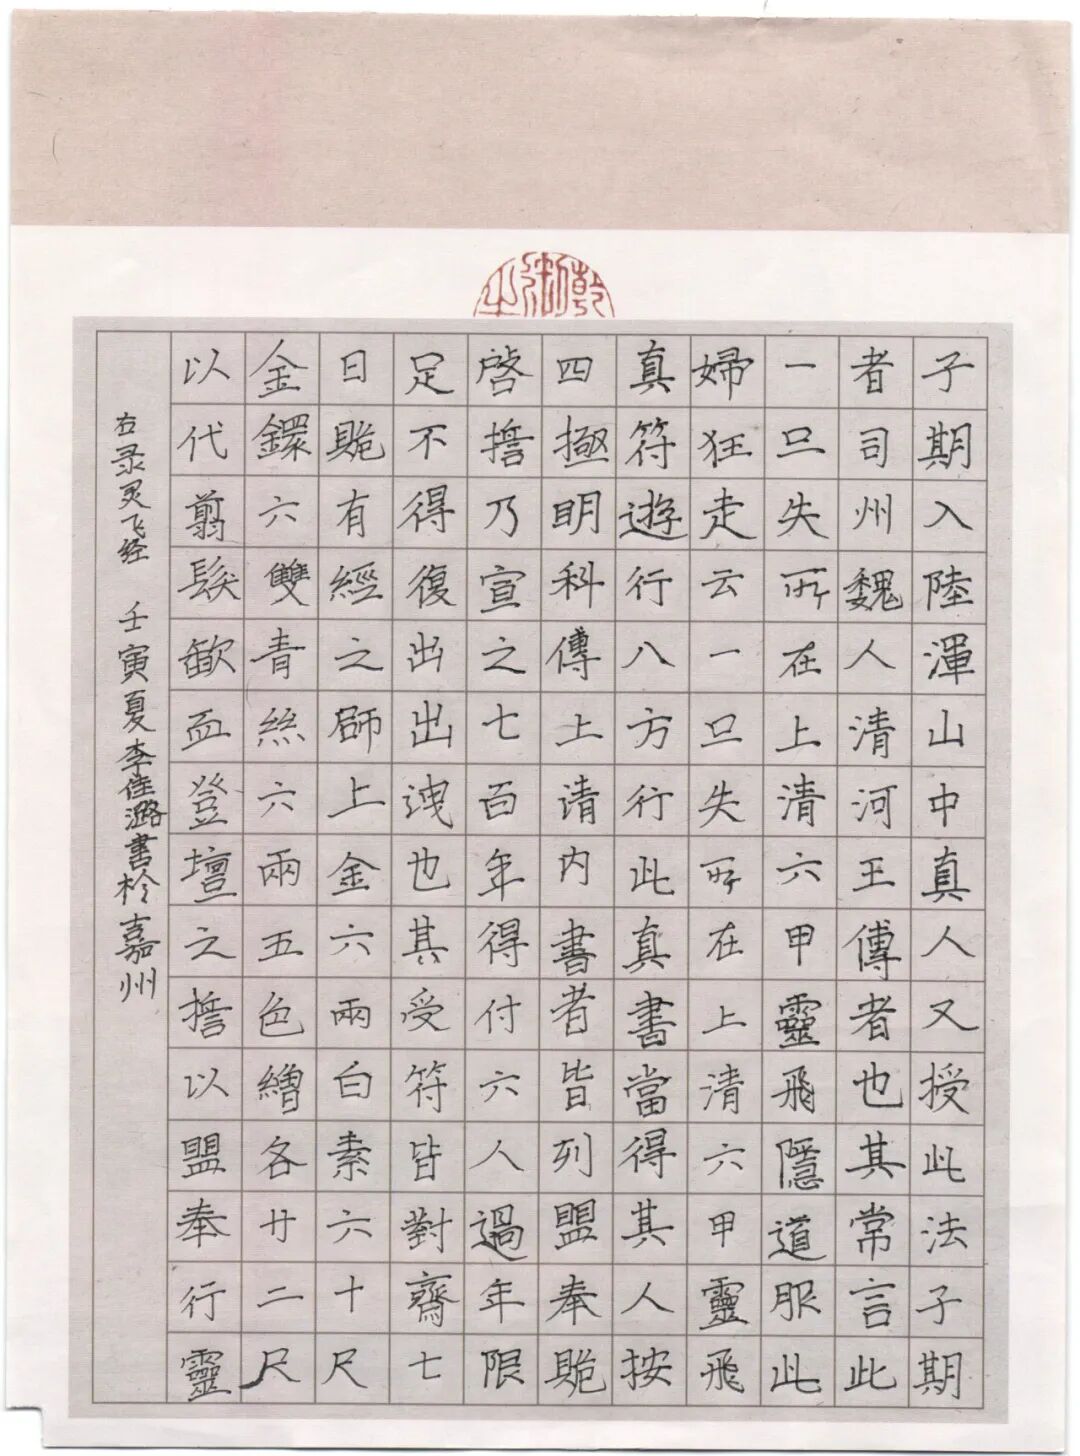 子期入陸渾山中真人又授此法子期
者司州魏人清河王傳者也其常言此
一旦失所在上清六甲靈飛隱道服此
婦狂走云一旦失所在上清六甲靈飛
真符遊行八方行此真書當得其人按
四極明科傳上清内書者皆列盟奉䞈
啓誓乃宣之七百年得付六人過年限
足不得復出出洩也其受符皆對齋七
日䞈有經之師上金六兩白素六十尺
金鐶六雙青絲六兩五色繒各廿二尺
以代翦髮歃血登壇之誓以盟奉行靈
右录灵飞经 壬寅夏李佳潞書於嘉州